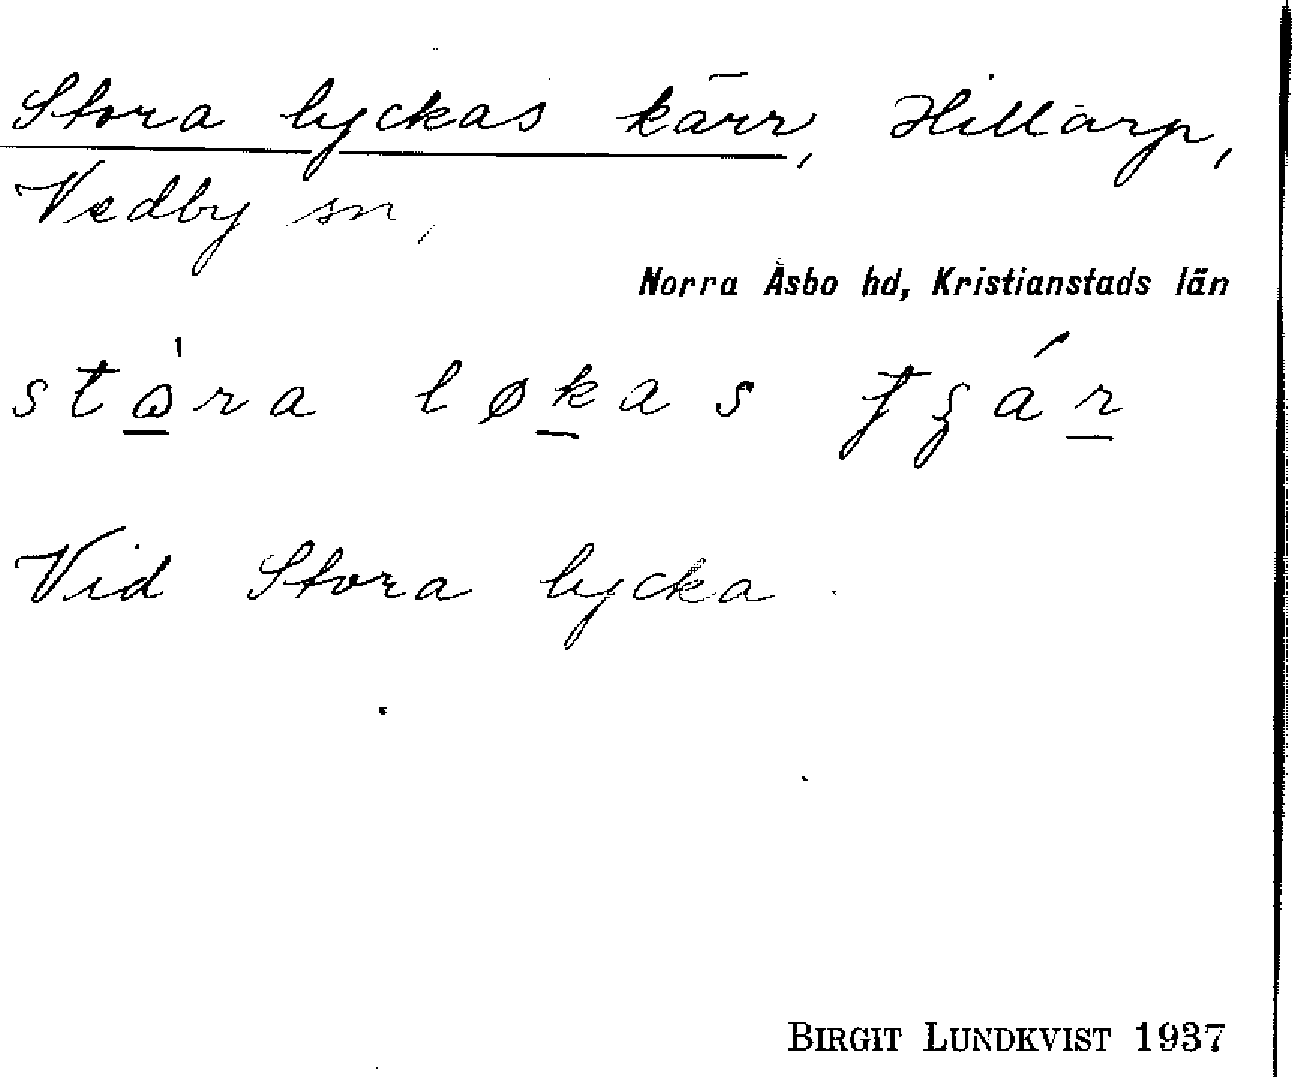 Stora lyckas kärr, Hillarp,
Vedby sn,
Norra Åsbo hd, Kristianstads län
stòra løkas ʄʒár
Vid Stora lycka.
BIRGIT LUNDKVIST 1937